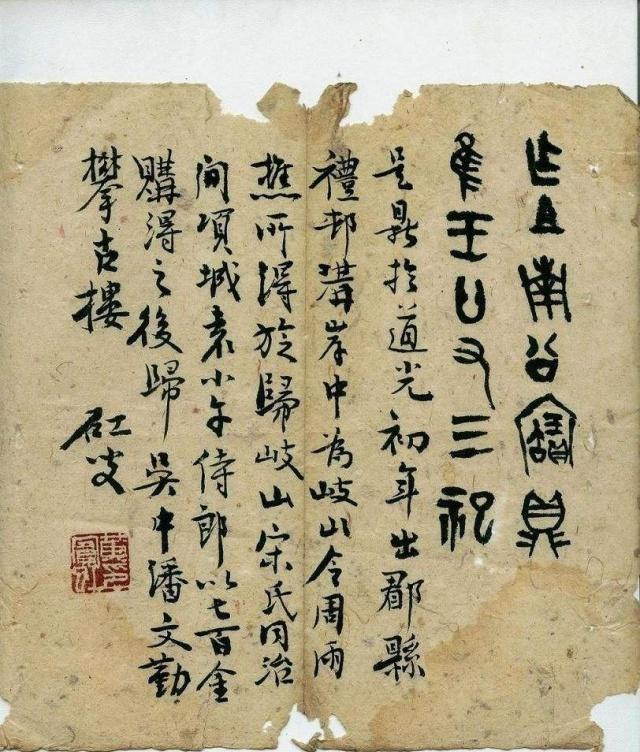 乍且南公寶鼎
隹王廿又三祀
是鼎於道光初年出郿縣
禮邨溝岸中為岐山令周雨
樵所得旋歸岐山宋氏同治
間項城袁小午侍郎以七百金
購得之後歸吳中潘文勤
攀古樓 虹叟